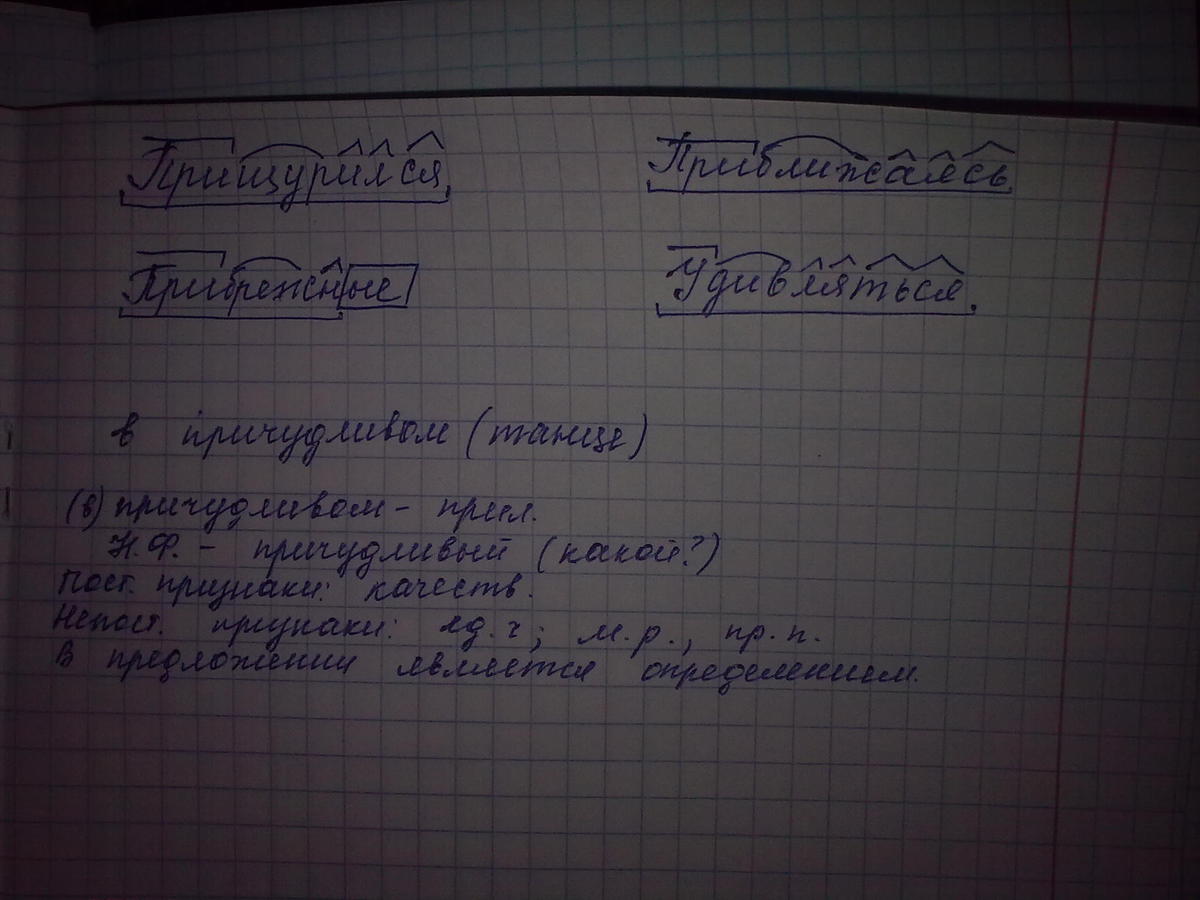 Прищурился Приближаясь
Прибрежные Удивляться
в причудливом (танце)
(в) причудливом - прил.
Н.Ф. - причудливый (какой?)
Пост. признаки: качеств.
Непост. признаки: ед.ч; м.р., пр.п.
В предложении является определением.